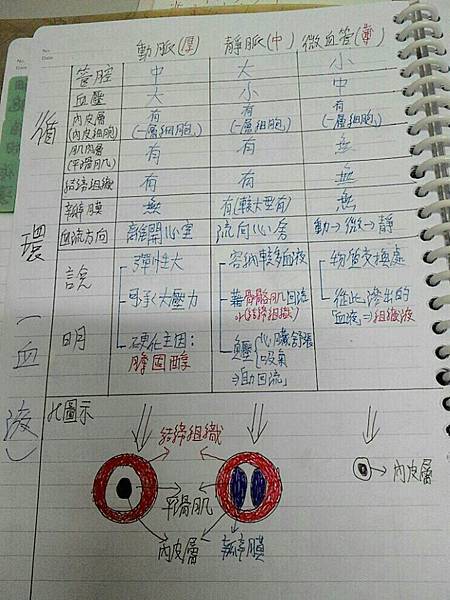 No.
Date
No.
Date
動脈(厚) 靜脈(中) 微血管(薄)
管腔 中 大 小
血壓 大 小 中
內皮層(內皮細胞) 有(一層細胞) 有(一層細胞) 有(一層細胞)
肌肉層(平滑肌) 有 有 無
結締組織 有 有 無
瓣膜 無 有(較大型有) 無
血流方向 離開心室 流向心房 動→微→靜
說明
彈性大
可承大壓力
硬化主因:
膽固醇
容納較多血液
藉骨骼肌回流
(結締組織)
負壓 心臟舒張
吸氣
⇒助回流
物質交換處
從此滲出的
「血液」⇒組織液
循環(血液)
圖示
結締組織
平滑肌
內皮層
瓣膜
內皮層